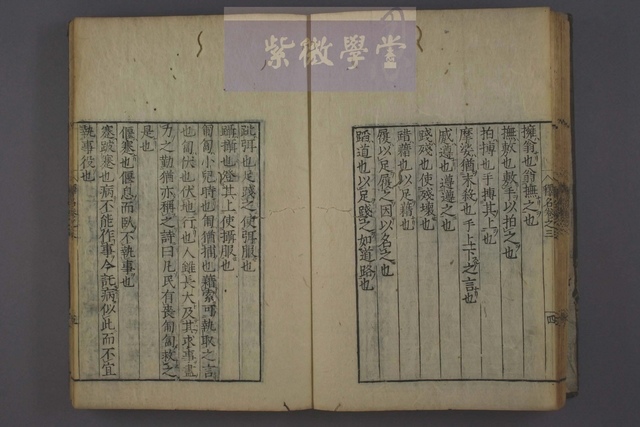 紫微學堂
擁翁也翁撫之也
撫敷也敷手以拍之也
拍搏也手搏其上也
摩娑猶末殺也手上下之言也
蹙遵也遵迫之也
踐殘也使殘壞也
踖藉也以足藉也
履以足履之因以名之也
蹈道也以足踐之如道路也
釋名卷之三
四
跐弭也足踐之使弭服也
躡懾也登其上使懾服也
匍匐小兒時也匍猶捕也藉索可執取之言
也匐伏也伏地行也人雖長大及其求事盡
力之勤猶亦稱之詩曰凡民有喪匍匐救之
是也
偃蹇也偃息而臥不執事也
蹇跛蹇也病不能作事今託病似此而不宜
執事役也